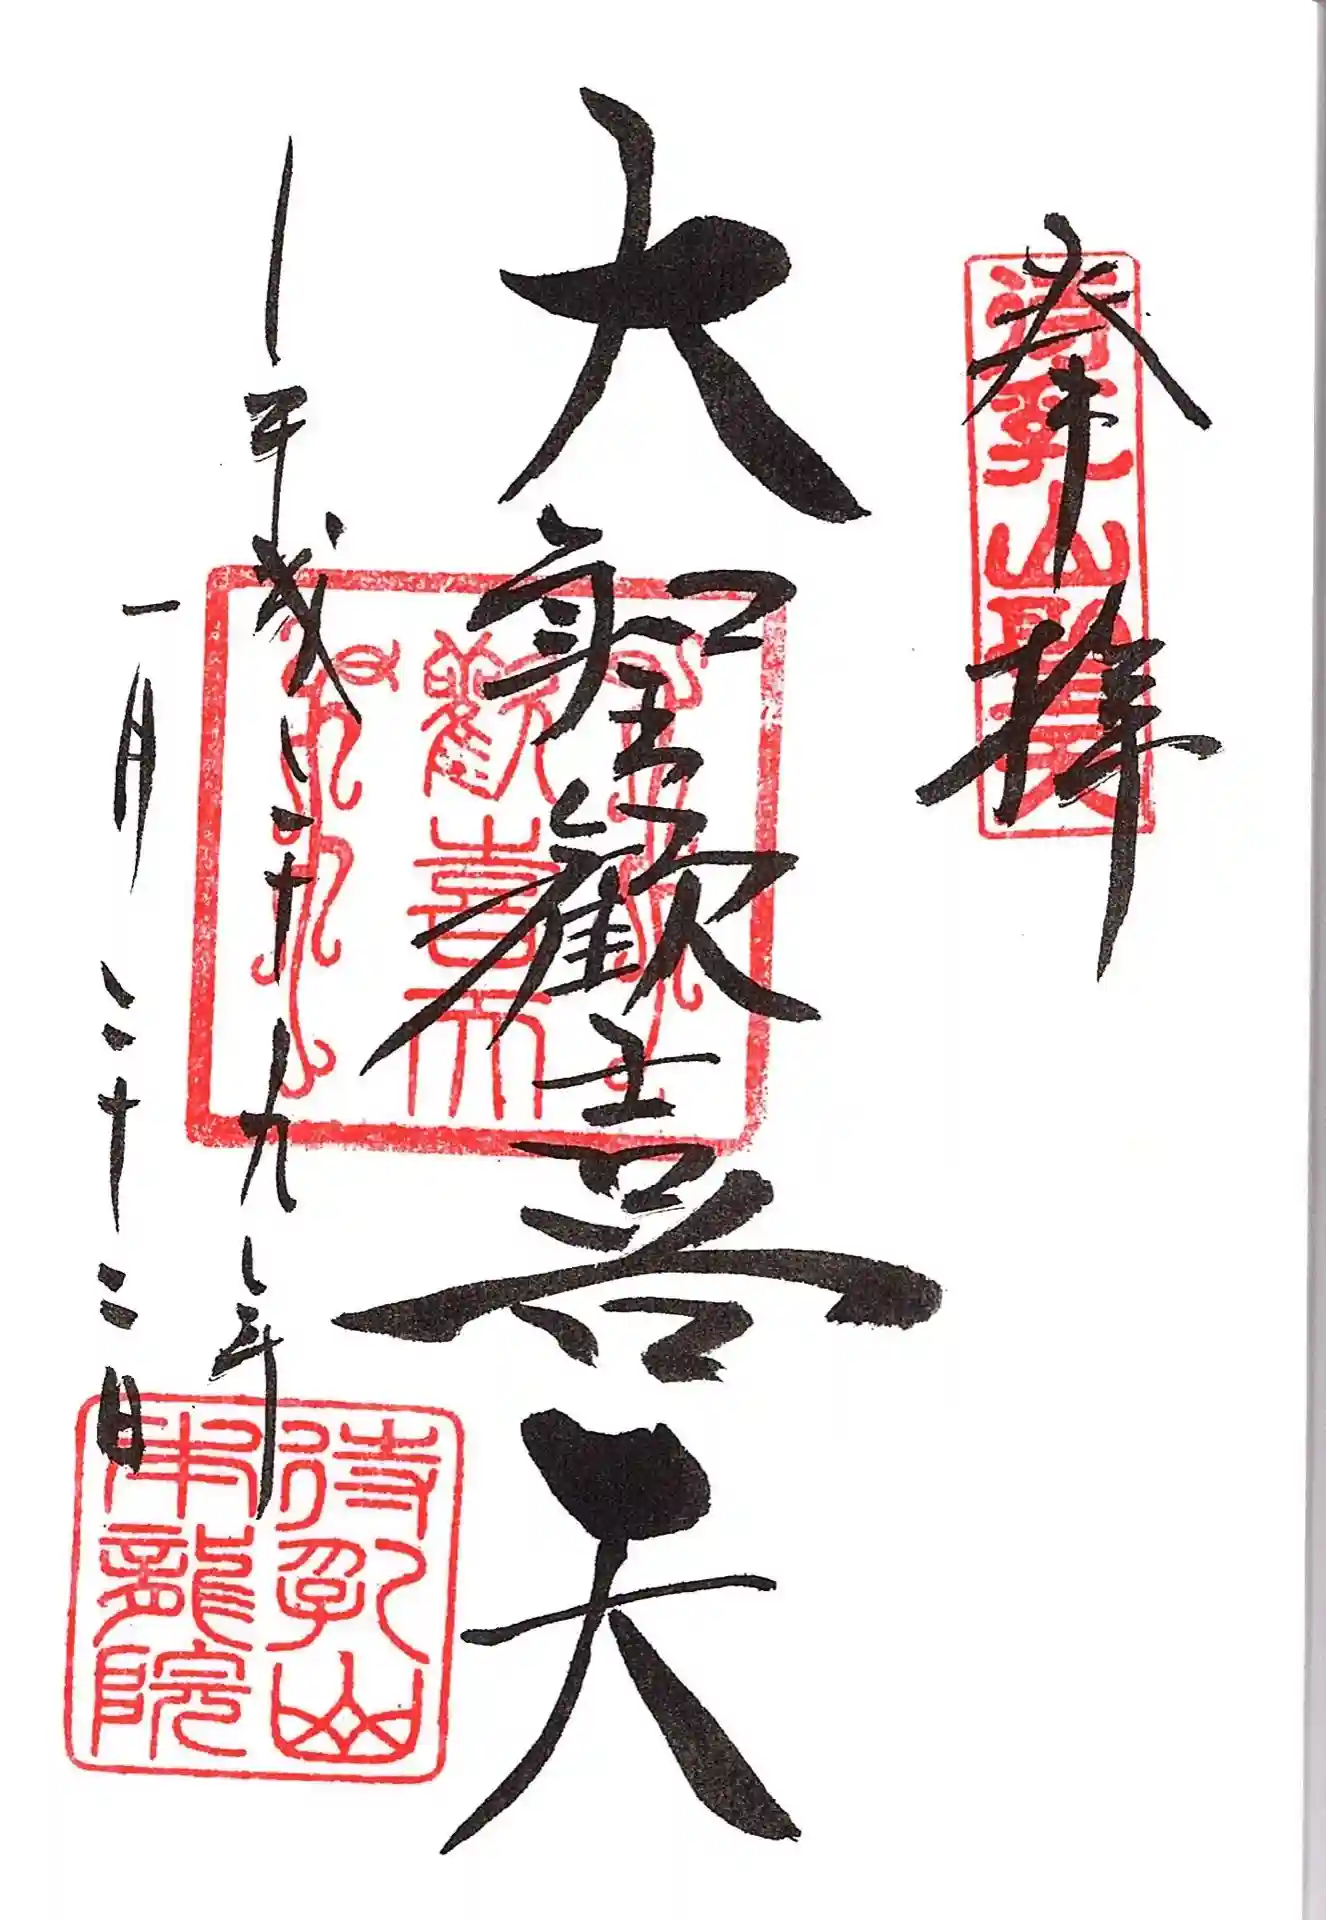 奉拝
待乳山聖天
大聖歓喜天
歓喜天
平成二十九年
一月二十二日
待乳山
本龍院